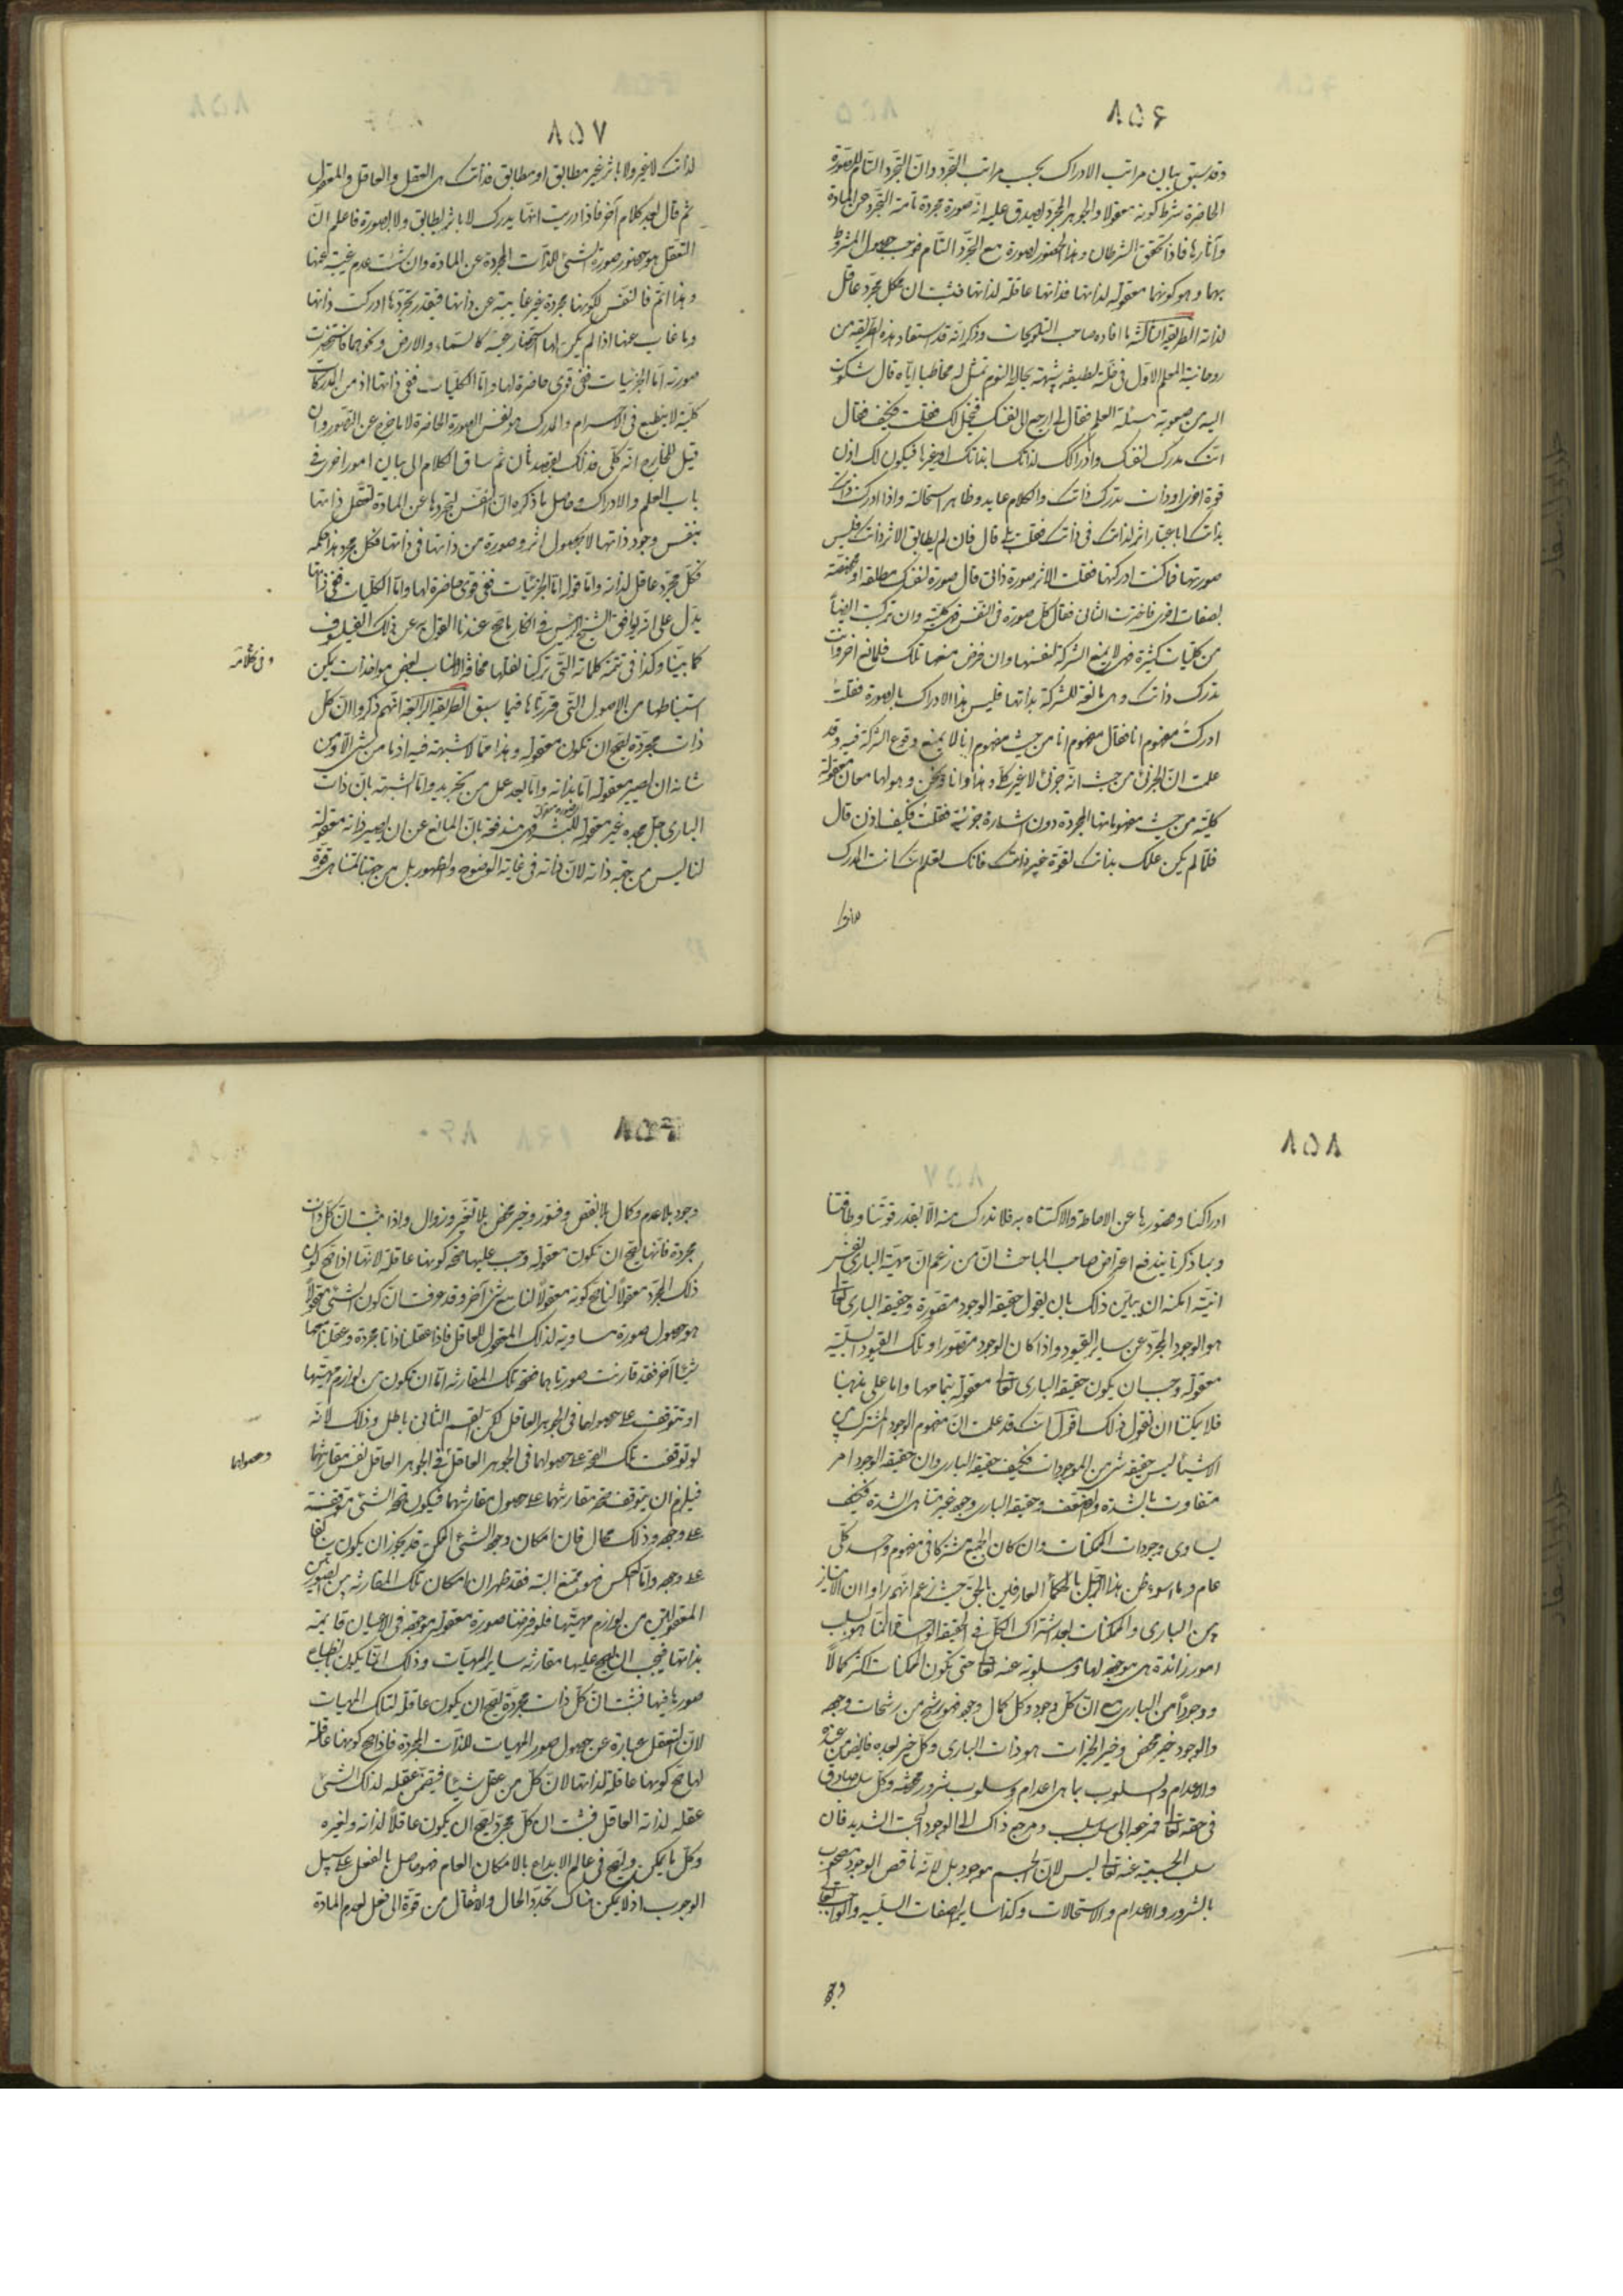 ٨٥٦
وقد سبق بيان مراتب الادراك بحسب مراتب التجرّد وانّ التجرّد التام للصّورة
الحاضرة شرط كونه معقولا والجوهر المجرّد يصدق عليه انّه صورة مجردة تامة التجرّد عن المادة
وآثارها فاذا تحقق الشرطان وهذا الحضور لصورة مع التجرّد التام فوجب حصول المشروط
بهما وهو كونها معقولة لذاتها فذاتها عاقلة لذاتها فثبت ان كل مجرّد عاقل
لذاته الطريقة الثالثة ما افاده صاحب التلويحات وذكر انّه قد استفاد هذه الطريقة من
روحانية المعلم الاوّل فى خلسة لطيفة شبيهة بحالة النوم تمثل له مخاطبا ايّاه قال شكوت
اليه من صعوبة مسئلة العلم فقال لى ارجع الى نفسك فينحل لك فقلت وكيف فقال
انك مدرك لنفسك وادراكك لذاتك ابذاتك او بغيرها فيكون لك اذن
قوة اخرى او ذات تدرك ذاتك والكلام عايد وظاهر استحالته واذا ادركت ذاتك
بذاتك اباعتبار اثر لذاتك فى ذاتك فقلت بلى قال فان لم يطابق الاثر ذاتك فليس
صورتها فما كنت ادركتها فقلت الاثر صورة ذاتى قال صورة لنفسك مطلقة او مخصّصة
بصفات اخرى فاخترت الثانى فقال كلّ صورة فى النفس فهى كلية وان تركبت ايضاً
من كليات كثيرة فهى لا يمنع الشركة لنفسها وان فرض منعها تلك فلمانع آخر وانت
تدرك ذاتك وهى مانعة للشركة بذاتها فليس هذا الادراك بالصورة فقلتُ
ادركتُ مفهوم انا فقال مفهوم انا من حيث مفهوم انا لا يمنع وقوع الشركة فيه وقد
علمت انّ الجزئى من حيث انّه جزئى لا غير كلّى وهذا وانا ونحن وهو لها معان معقولة
كلية من حيث مفهوماتها المجردة دون اشارة جزئية فقلتُ فكيف اذن قال
فلمّا لم يكن علمك بذاتك لقوّة غير ذاتك فانك تعلم انك انت المدرك
لذاتك
٨٥٧
لذاتك لا غير ولا باثر غير مطابق او مطابق فذاتك هى العقل والعاقل والمعقول
ثم قال بعد كلام آخر فاذا دريت انها يدرك لا باثر يطابق ولا بصورة فاعلم انّ
التعقّل هو حضور صورة الشىء للذات المجردة عن المادة وان شئت عدم غيبته عنها
وهذا اتمّ فالنفس لكونها مجردة غير غايبة عن ذاتها فبقدر تجرّدها ادركت ذاتها
وما غاب عنها اذا لم يكن لها استحضار عينه كالسّماء والارض ونحوهما فاستحضرت
صورته امّا الجزئيات ففى قوى حاضرة لها وامّا الكليات ففى ذاتها اذ من المدركات
كليّة لا ينطبع فى الاجرام والمدرك هو نفس الصورة الحاضرة لا ما خرج عن التصور وان
قيل للخارج انه كلّى فذلك بقصد ثان ثم ساق الكلام الى بيان امور اخرى فى
باب العلم والادراك وحاصل ما ذكره انّ النفس لتجردها عن المادة تعقل ذاتها
بنفس وجود ذاتها لا بحصول اثر وصورة من ذاتها فى ذاتها فكل مجرد هذا حكمه
فكلّ مجرّد عاقل لذاته وامّا قوله امّا الجزئيات ففى قوى حاضرة لها وامّا الكليات ففى ذاتها
يدل على انه يوافق الشيخ الرئيس فى انكار ما صح عندنا القول به عن ذلك الفيلسوف
كما بيّنا وكذا فى تتمة كلماته التى تركنا نقلها مخافة الاطناب بعض مواخذات يمكن
استنباطها من الاصول التى قررناها فيما سبق الطريقة الرابعة انهم ذكروا انّ كل
ذات مجردة يصح ان تكون معقولة وهذا ممّا لا شبهة فيه اذ ما من شىء الّا ومن
شانه ان يصير معقولة امّا بذاته وامّا بعد عمل من تجريد وامّا الشبهة بانّ ذات
البارى جلّ مجده غير معقولة للبشر فهى مندفعة بانّ المانع عن ان يصير ذاته معقولة
لنا ليس من جهة ذاته لانّ ذاته فى غاية الوضوح والظهور بل من جهتنا لتناهى قوّة
٨٥٨
ادراكنا وقصورها عن الاحاطة والاكتناه به فلا ندرك منه الّا بقدر قوتنا وطاقتنا
وبما ذكرنا يندفع اعتراض صاحب المباحث انّ من زعم انّ مهيّة البارى نفس
انيّته امكنه ان يبيّن ذلك بان يقول حقيقة الوجود متصوّرة وحقيقة البارى تعالى
هو الوجود المجرّد عن ساير القيود واذا كان الوجود متصوّرا وتلك القيود السلبيّة
معقولة وجب ان يكون حقيقة البارى تعالى معقولة بتمامها وامّا على مذهبنا
فلا يمكننا ان نقول ذلك اقول انّك قد علمت انّ مفهوم الوجود المشترك بين
الاشياء ليس حقيقة شىء من الموجودات فكيف حقيقة البارى وانّ حقيقة الوجود امر
متفاوت بالشدة والضعف وحقيقة البارى وجود غير متناهى الشدة فكيف
يساوى وجودات الممكنات وان كان الجميع مشتركا فى مفهوم واحد كلّى
عام وما اسوء ظن هذا الرجل بالحكماء العارفين بالحقّ حيث زعم انّهم راوا ان الامتياز
بين البارى والممكنات بعد اشتراك الكلّ فى الحقيقة الواحدة انّما هو بسلب
امور زائدة هى موجودة لها ومسلوبة عنه تعالى حتى يكون الممكنات اكثر كمالاً
ووجوداً من البارى مع انّ كلّ وجود وكلّ كمال وجود فهو رشح من رشحات وجوده
والوجود خير محض وخير الخيرات هو ذات البارى وكل خير بعده فايض من عنده
والاعدام والسلوب بما هى اعدام وسلوب شرور محضة وكلّ سلب صادق
فى حقه تعالى فمرجعه الى سلب سلب ومرجع ذاك الى الوجود البحت الشديد فان
سلب الجسمية عنه تعالى ليس لانّ الجسم موجود بل لانّه ناقص الوجود مصحوب
بالشرور والاعدام والاستحالات وكذا ساير الصفات السلبيه والواجب تعالى
وجود
٨٥٩
وجود بلا عدم وكمال بلا نقص وفتور وخير محض بلا تغير وزوال واذا ثبت انّ كلّ ذات
مجردة فانها يصح ان تكون معقولة وجب عليها صحة كونها عاقلة لانّها اذا صح كون
ذلك المجرّد معقولاً لنا صح كونه معقولاً لنا مع شىء آخر وقد عرفت انّ كون الشىء معقولاً
هو حصول صورة مساوية لذلك المعقول للعاقل فاذا عقلنا ذاتا مجردة وعقلنا معها
شيئا آخر فقد قارنت صورتاهما فصحة تلك المقارنة امّا ان تكون من لوازم مهيّتها
او تتوقف على حصولها فى الجوهر العاقل لكن القسم الثانى باطل وذلك لانّه
لو توقفت تلك الصحة على حصولها فى الجوهر العاقل فى الجوهر العاقل نفس مقارنتهما
وحصولهما
فيلزم ان يتوقف صحة مقارنتهما على حصول مقارنتهما فيكون صحة الشىء متوقفة
على وجوده وذلك محال فان امكان وجود الشىء الممكن قد يجوز ان يكون سابقا
على وجوده وامّا العكس فهو ممتنع البتة فقد ظهر ان امكان تلك المقارنة بين الصورتين
المعقولتين من لوازم مهيّتها فلو فرضنا صورة معقولة موجودة فى الاعيان قايمة
بذاتها فيجب ان يصح عليها مقارنة ساير المهيّات وذلك انّما يكون بانطباع
صورها فيها فثبت انّ كلّ ذات مجردة يصح ان يكون عاقلة لتلك المهيات
لانّ التعقل عبارة عن حصول صور المهيات للذات المجردة فاذا صح كونها عاقلة
لها صح كونها عاقلة لذاتها لانّ كلّ من عقل شيئا فيضمن عقله لذلك الشىء
عقله لذاته العاقل فثبت ان كلّ مجرّد يصح ان يكون عاقلاً لذاته ولغيره
وكلّ ما يمكن ويصح فى عالم الابداع بالامكان العام فهو حاصل بالفعل على سبيل
الوجوب اذ لا يمكن هناك تجدّد الحال والانتقال من قوّة الى فعل لعدم المادة